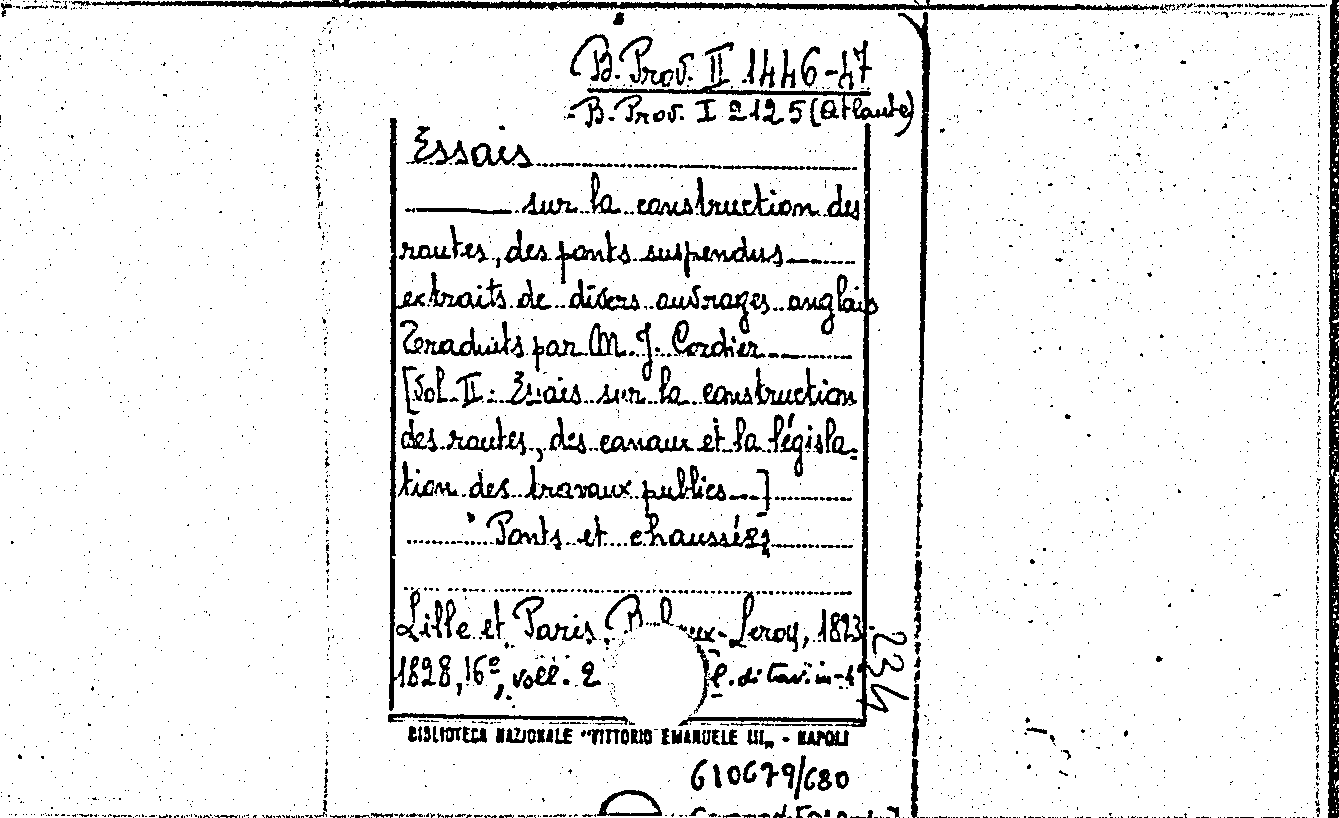 B. Prov. II 1446-47
B. Prov. I 2125 (Atlante)
Essais
sur la construction des
routes, des ponts suspendus
extraits de divers ouvrages anglais
Traduits par M. J. Cordier
[Vol. II: Essais sur la construction
des routes, des canaux et la législa=
tion des travaux publics]
Ponts et chaussées
Lille et Paris, -Leroy, 1823-
1828, 16°, voll. 2 di tav. in-4°
234
BIBLIOTECA NAZIONALE "VITTORIO EMANUELE III" - NAPOLI
610679/680